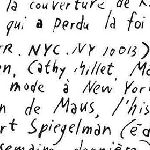 la couverture de R
qui a perdu la foi
R. NYC. NY 10013)
n, Cathy Millet, Mo
mode à New York
n de Maus, l'his
rt Spiegelman (éd
semaine dernière)